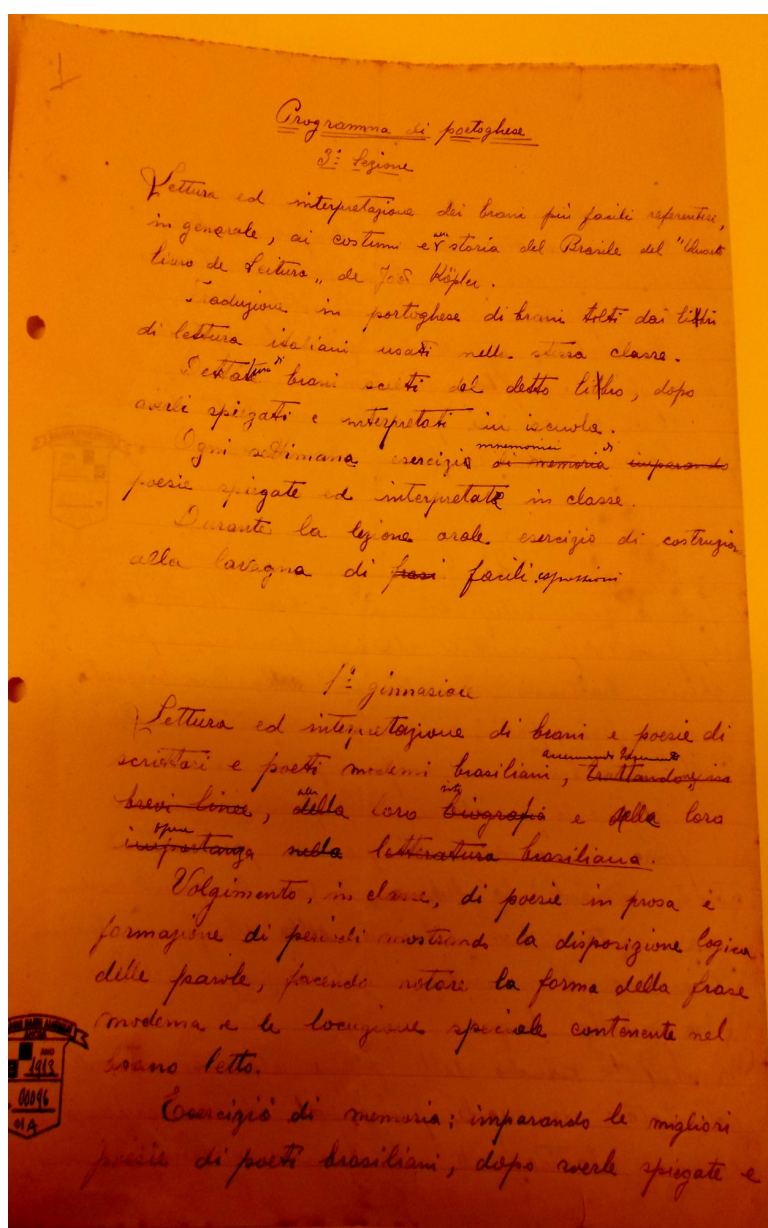 1
Programma di portoghese
3ª Lezione
Lettura ed interpretazione dei brani più facili referentise,
in generale, ai costumi e alla storia del Brasile del "Quarto
livro de Leitura„ de João Köpler.
Traduzione in portoghese di brani tolti dai libri
di lettura italiani usati nella stessa classe.
Dettatura di brani scelti del detto libro, dopo
averli spiegati e interpretati in iscuola.
mnemonici di
Ogni settimana esercizio di memoria imparando
poesie spiegate ed interpretate in classe.
Durante la lezione orale esercizio di costruzion
alla lavagna di frasi facili espressioni
1ª ginnasiale
Lettura ed interpretazione di brani e poesie di
scrittori e poeti moderni brasiliani, trattando, in
brevi linee, della loro biografia e della loro
vita
opere
importanza nella letteratura brasiliana.
Volgimento, in classe, di poesie in prosa e
formazione di periodi mostrando la disposizione logica
delle parole, facendo notare la forma della frase
moderna e le locuzione speciale contenente nel
brano letto.
Esercizio di memoria: imparando le migliori
poesie di poeti brasiliani, dopo averle spiegate e
ANO
1913
00096
01A